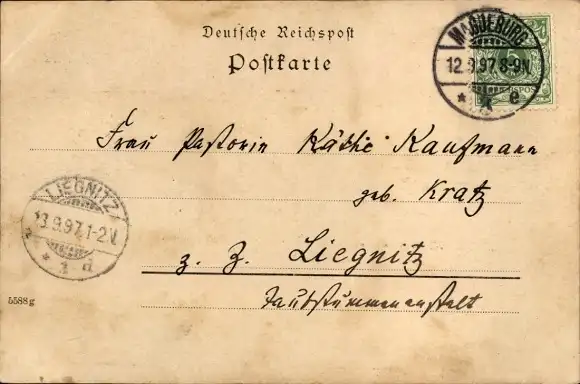 Deutsche Reichspost
Postkarte
MAGDEBURG
12.9.97.8-9N.
* * e
5
Frau Pastorin Käthe Kaufmann
geb. Kratz
z. Z. Liegnitz
Taubstummenanstalt
LIEGNITZ
13.9.97.1-2V.
* 1 d
5588g